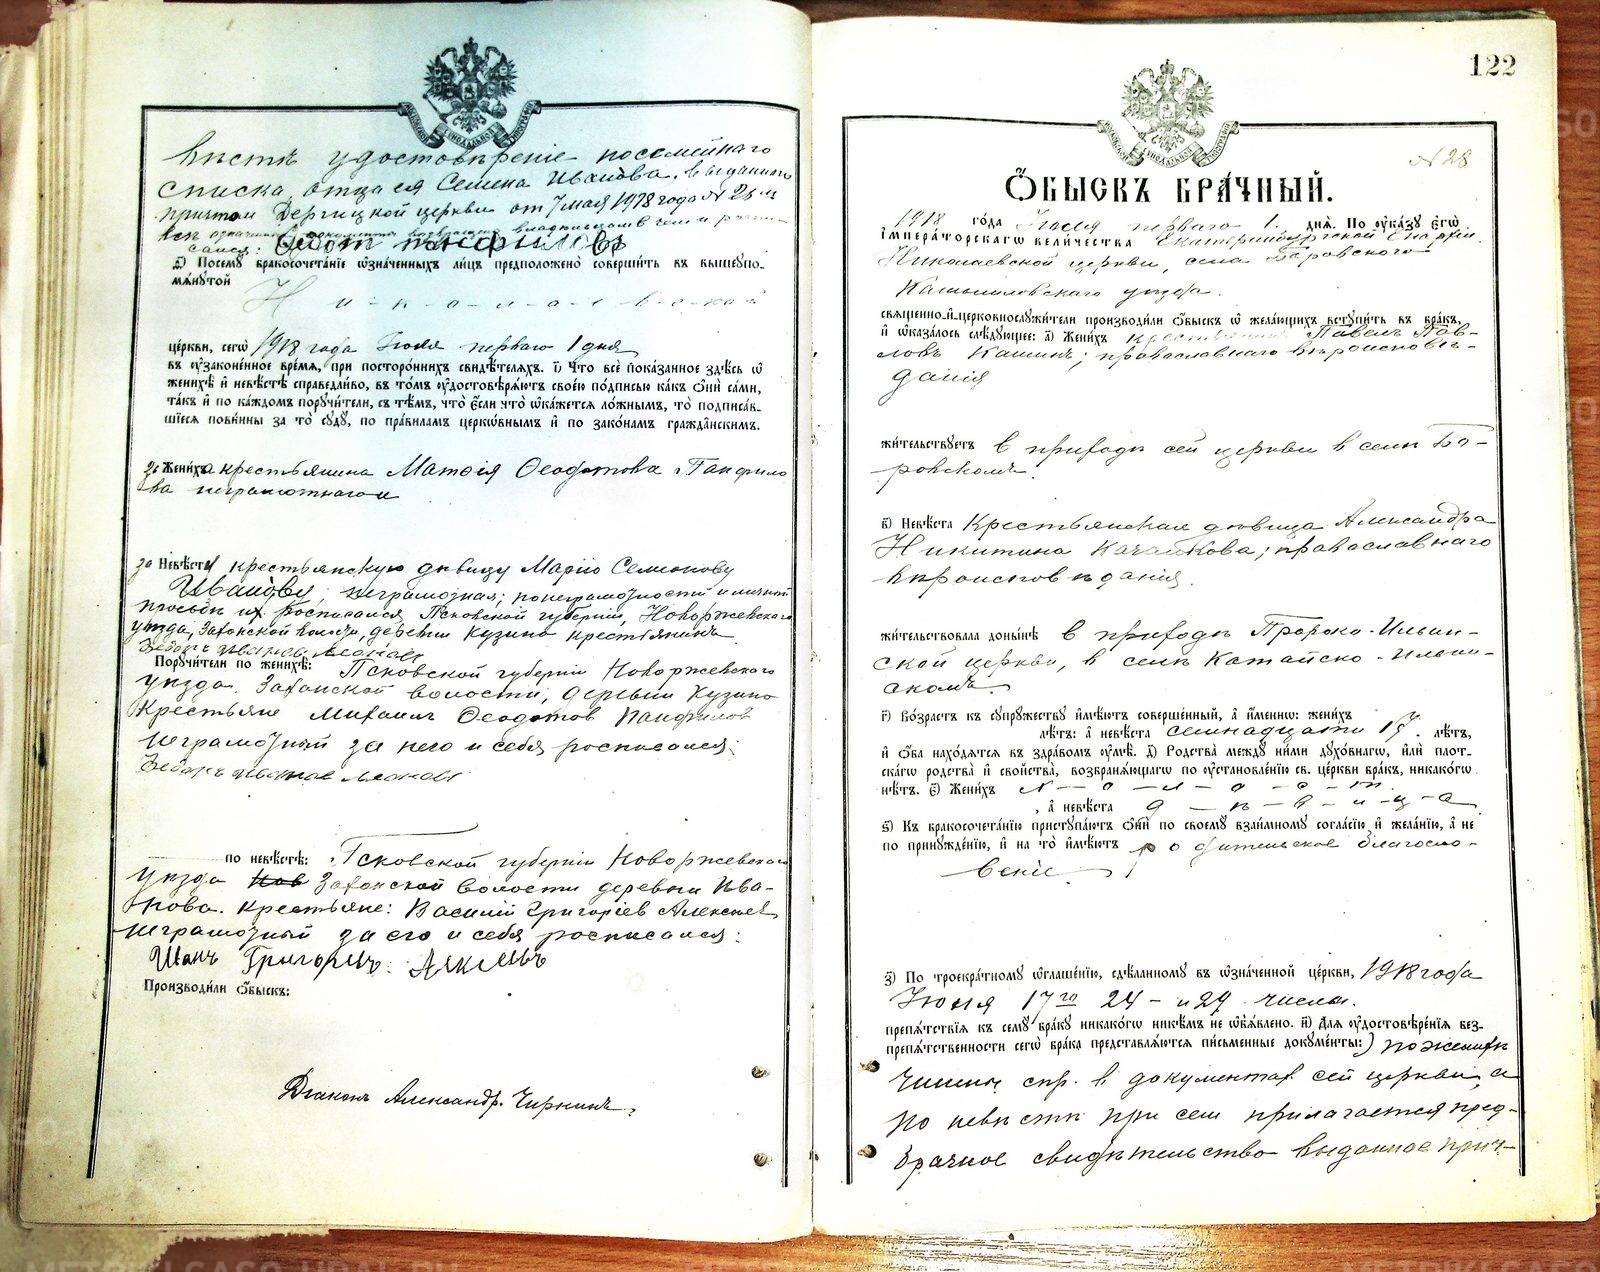 вѣстѣ удостовѣреніе посемейнаго
списка, отца ея Семена Иванова, выданнаго
причтом церкви от 7 мая 1918 года №
Федот Панфилов
з҃) Посемꙋ бракосочета́нїе ѡ҆зна́ченныхъ ли́цъ предположено̀ соверши́ть въ вышеꙋпо-
мѧ́нꙋтой
Н и-к-о-л-а-е-в-с-к-о-й
це́ркви, сегѡ̀ 1918 года Іюля перваго 1 дня
въ ᲂу҆зако́ненное вре́мѧ, при посторо́ннихъ свидѣ́телѧхъ. і҃) Что̀ всѐ пока́занное здѣ́сь ѡ҆
женихѣ̀ и҆ невѣ́стѣ справедли́во, въ то́мъ ᲂу҆достовѣрѧ́ютъ свое́ю по́дписью ка́къ ѻ҆нѝ са́ми,
та́къ и҆ по ка́ждомъ порꙋчи́тели, съ тѣ́мъ, что̀ є҆́сли что̀ ѡ҆ка́жетсѧ ло́жнымъ, то̀ подписа́в-
шїесѧ пови́нны за то̀ сꙋдꙋ̀, по пра́виламъ церко́внымъ и҆ по зако́намъ гражда́нскимъ.
за Жени́хъа крестьянина Матѳія Ѳеодотова Панфило
ва неграмотнаго и
за Невѣ́стꙋ крестьянскую дѣвицу Марію Семенову
Иванову, неграмотная; по неграмотности и личной
просьбѣ их росписался Псковской губерніи, Новоржевскаго
уѣзда, Заѳонской волости, деревни Кузино крестьянинъ
Иванов Леонов
Порꙋчи́тели по женихѣ̀: Псковской губерніи Новоржевскаго
уѣзда Заѳонской волости, деревни Кузино
крестьяне Михаилъ Ѳеодотов Панфилов
неграмотный за него и себя росписался:
Иванов Леонов
по невѣ́стѣ: Псковской губерніи Новоржевскаго
уѣзда Заѳонской волости деревни Ива-
нова. крестьяне: Василій Григоріев Алексѣев
неграмотный за его и себя росписался:
Иванъ Григорьевъ Алексѣевъ
Производи́ли ѻ҆бы́скъ:
Діаконъ Александръ Чирнинъ.
122
№ 28
Ѻ҆БЫ́СКЪ БРА́ЧНЫЙ.
1918 го́да Іюля перваго 1. днѧ̀. По ᲂу҆ка́зꙋ є҆гѡ̀
і҆мпера́торскагѡ вели́чества Екатеринбургской Епархіи
Николаевской церкви, села Боровского
Камышловского уѣзда.
сващенно-и҆-церковнослꙋжи́тели производи́ли ѻ҆бы́скъ ѡ҆ жела́ющихъ встꙋпи́ть въ бра́къ,
и҆ ѡ҆каза́лось слѣ́дꙋющее: а҃) Жени́хъ крестьянинъ Павелъ Пав-
ловъ Кашинъ; православнаго вѣроисповѣ-
данія
жи́тельствꙋетъ в приходѣ сей церкви в селѣ Бо-
ровскомъ.
в҃) Невѣ́ста Крестьянская дѣвица Александра
Никитина Качалкова; православнаго
вѣроисповѣданія.
жи́тельствовала доны́нѣ в приходѣ Пророко-Ильин-
ской церкви, в селѣ Катайско-Ильин-
скомъ.
г҃) Во́зрастъ къ сꙋпрꙋ́жествꙋ и҆мѣ́ютъ соверше́нный, а҆ и҆́менно: жени́хъ
лѣ́тъ: а҆ невѣ́ста семнадцати 17. лѣ́тъ,
и҆ ѻ҆́ба нахо́дѧтсѧ въ здра́вомъ ᲂу҆мѣ̀. д҃) Родства̀ междꙋ ни́ми дꙋхо́внагѡ, и҆лѝ плот-
ска́гѡ родства̀ и҆ сво́йства, возбранѧ́ющагѡ по ᲂу҆становле́нїю св. це́ркви бра́къ, никако́гѡ
нѣ́тъ. є҃) Жени́хъ х-о-л-о-с-т
, а҆ невѣ́ста д-ѣ-в-и-ц-а
ѕ҃) Къ бракосочета́нїю пристꙋпа́ютъ ѻ҆нѝ по своемꙋ̀ взаи́мномꙋ согла́сїю и҆ жела́нїю, а҆ не
по принꙋжде́нїю, и҆ на то̀ и҆мѣ́ютъ родительское благосло-
веніе
з҃) По троекра́тномꙋ ѡ҆глаше́нїю, сдѣ́ланномꙋ въ ѡ҆зна́ченной це́ркви, 1918 года
Іюня 17го 24 - и 29 числа.
препѧ́тствїѧ къ семꙋ̀ бра́кꙋ никако́гѡ никѣ́мъ не ѡ҆б̾ѧ́влено. и҃) Длѧ ᲂу҆достовѣре́нїѧ без-
препѧ́тственности сегѡ̀ бра́ка представлѧ́ютсѧ пи́сьменные докꙋме́нты:) по женихѣ
спр. в документах сей церкви, а
по невѣстѣ при сем прилагается пред-
брачное свидѣтельство выданное прич-